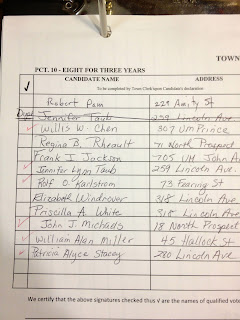 TOWN
PCT. 10 - EIGHT FOR THREE YEARS
✓ CANDIDATE NAME ADDRESS
To be completed by Town Clerk upon Candidate's declaration
Robert Pam 229 Amity St
Dupl Jennifer Taub 259 Lincoln Ave
✓ Willis W. Chen 307 UM Prince
Regina B. Rheault 71 North Prospect
Frank I Jackson 705 UM John A
✓ Jennifer Lynn Taub 259 Lincoln Ave.
✓ Rolf O. Karlstrom 73 Fearing St
Elizabeth Windrover 318 Lincoln Ave
Priscilla A. White 318 Lincoln Ave
✓ John J. Michaels 18 North Prospect
✓ William Alan Miller 45 Hallock St
✓ Patricia Alyce Stacey 280 Lincoln Ave
We certify that the above signatures checked thus √ are the names of qualified vot